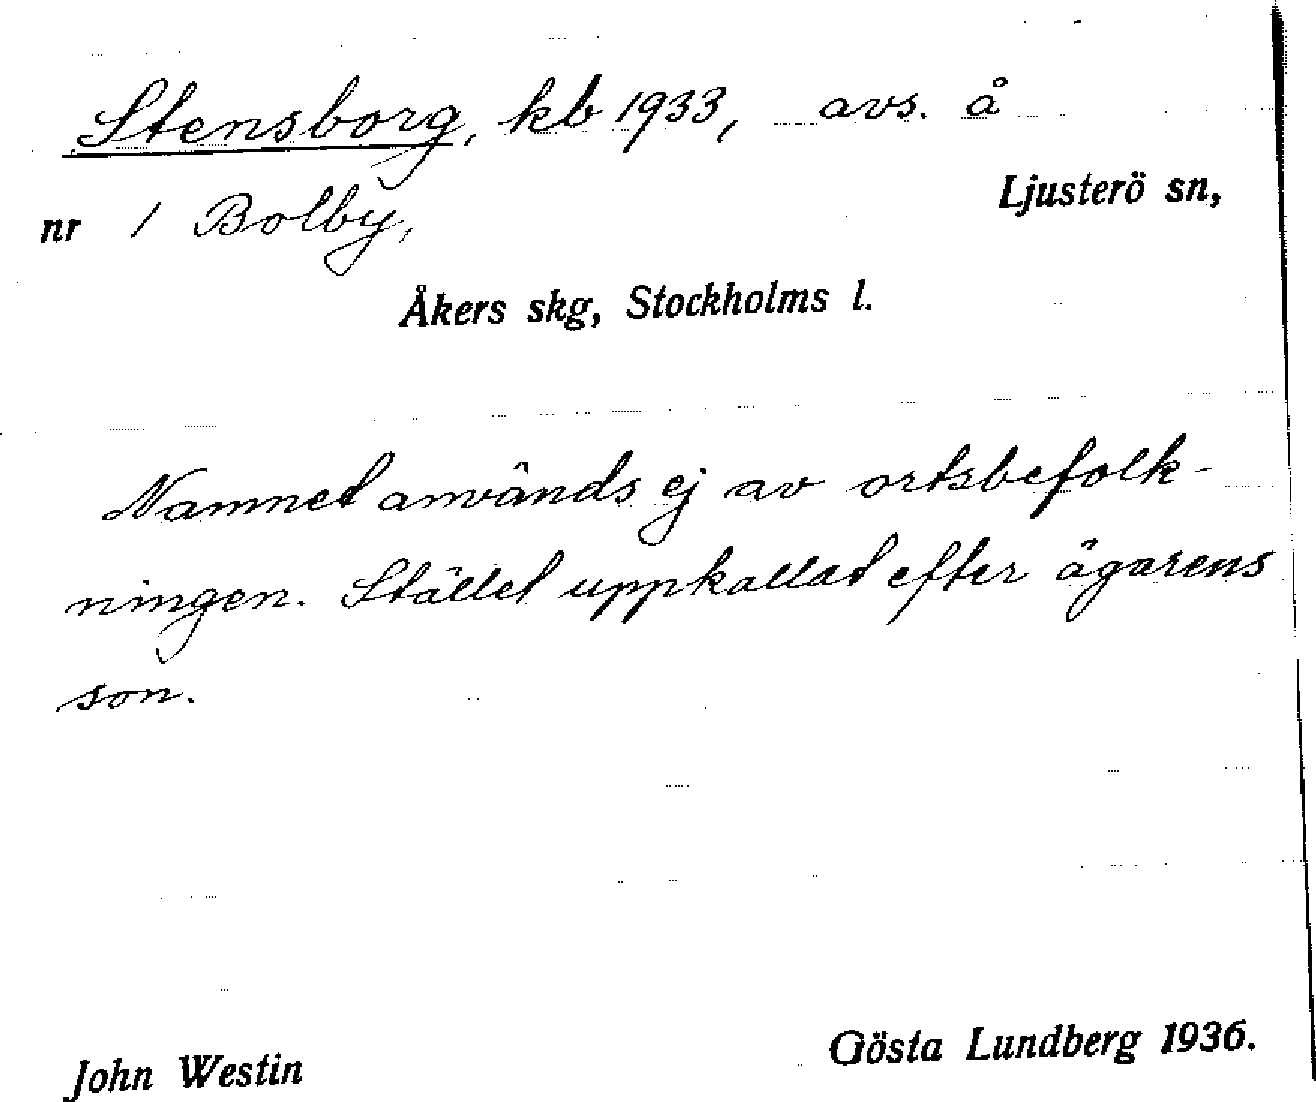 Stensborg, kb 1933, avs. å
Ljusterö sn,
nr 1 Bolby,
Åkers skg, Stockholms l.
Namnet används ej av ortsbefolk-
ningen. Stället uppkallat efter ägarens
son.
John Westin
Gösta Lundberg 1936.